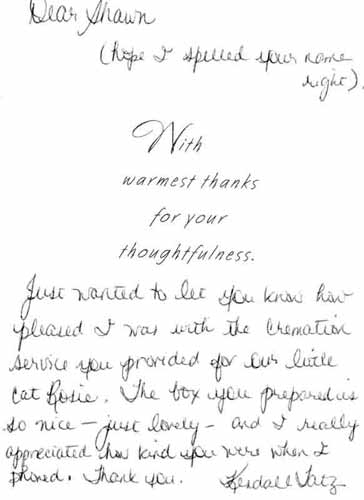 Dear Shawn
(hope I spelled your name
right).
With
warmest thanks
for your
thoughtfulness.
Just wanted to let you know how
pleased I was with the cremation
service you provided for our little
cat Rosie. The box you prepared is
so nice – just lovely – and I really
appreciated how kind you were when I
phoned. Thank you. Kendall Tatz